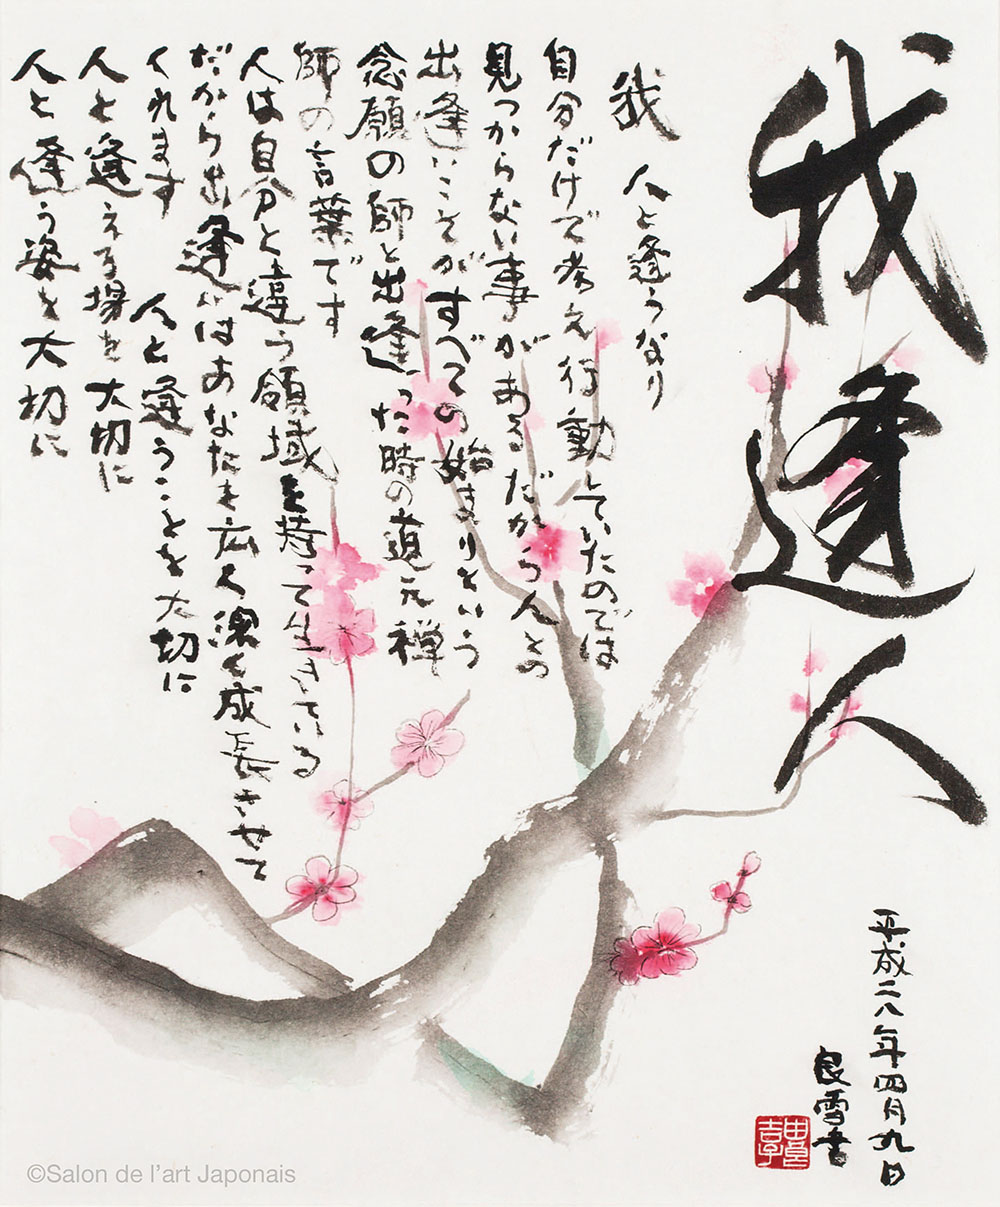 我逢人
我 人と逢うなり
自分だけで考え行動していたのでは
見つからない事があるだから人との
出逢いこそがすべての始まりという
念願の師と出逢った時の道元禅
師の言葉です
人は自分と違う領域を持って生きている
だから出逢いはあなたを広く深く成長させて
くれます 人と逢うことを大切に
人と逢える場を大切に
人と逢う姿を大切に
平成二八年四月九日
良雪書
©Salon de l'art Japonais